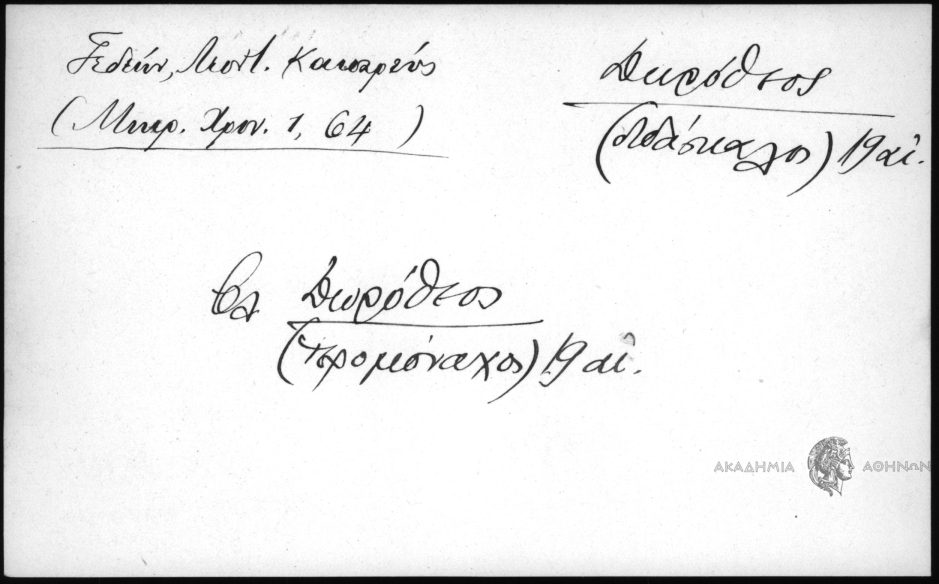 Γεδεών, Λεοντ. Καισαρεύς
(Μικρ. Χρον. 1, 64)
Δωρόθεος
(διδάσκαλος) 19 αἰ.
Βλ Δωρόθεος
(ἱερομόναχος) 19 αἰ.
ΑΚΑΔΗΜΙΑ ΑΘΗΝΩΝ